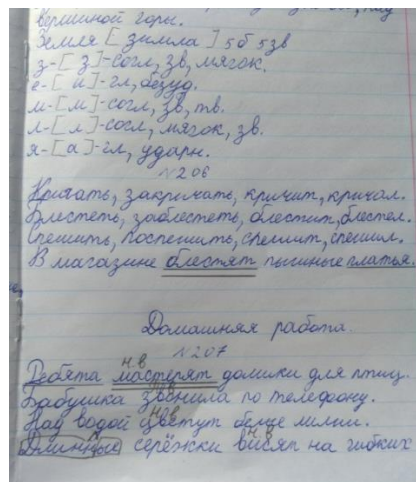 вершиной горы.
Земля [зимла] 5б 5зв
з-[з]-согл, зв, мягок.
е-[и]-гл, безуд.
м-[м]-согл, зв, тв.
л-[л]-согл, мягок, зв.
я-[а]-гл, ударн.
№206
Кричать, закричать, кричит, кричал.
Блестеть, заблестеть, блестит, блестел.
Спешить, поспешить, спешит, спешил.
В магазине блестят пышные платья.
Домашняя работа.
№207
н.в
Ребята мастерят домики для птиц.
Бабушка звонила по телефону.
Над водой цветут белые лилии.
н.в
Длинные серёжки висят на гибких